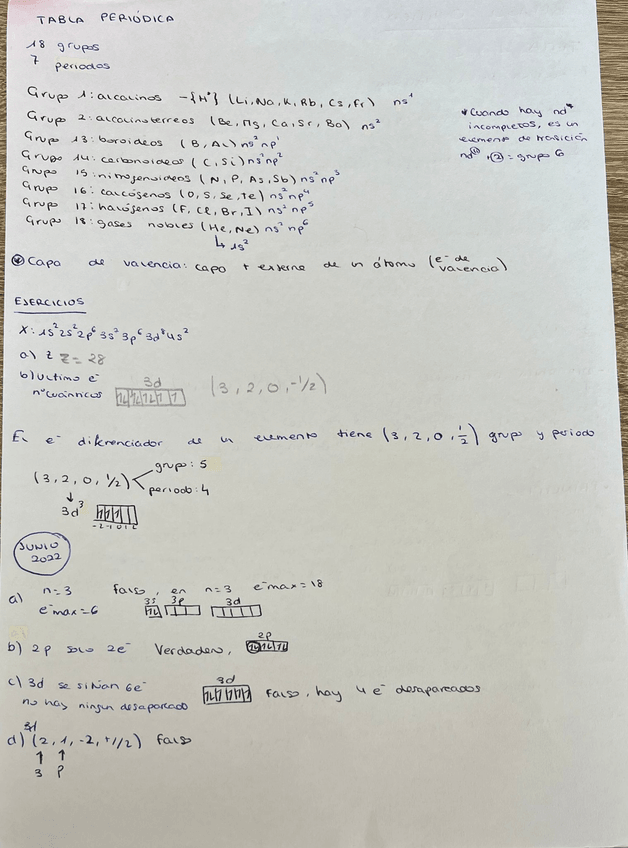 TABLA PERIÓDICA
18 grupos
7 periodos
Grupo 1: alcalinos -{H*} (Li, Na, K, Rb, Cs, Fr) ns¹
Grupo 2: alcalinoterreos (Be, Mg, Ca, Sr, Ba) ns²
Grupo 13: boroideos (B, AL) ns² np¹
Grupo 14: carbonoideos (C, Si) ns² np²
Grupo 15: nitrogenoideos (N, P, As, Sb) ns² np³
Grupo 16: calcógenos (O, S, Se, Te) ns² np⁴
Grupo 17: halógenos (F, Cl, Br, I) ns² np⁵
Grupo 18: gases nobles (He, Ne) ns² np⁶
↳ 1s²
* Cuando hay nd
incompletos, es un
elemento de transición
= grupo 6
* Capa de valencia: capa + externa de un átomo (e⁻ de valencia)
EJERCICIOS
X: 1s² 2s² 2p⁶ 3s² 3p⁶ 3d⁸ 4s²
a) Z Z = 28
b) Ultimo e⁻ 3d (3, 2, 0, -1/2)
nº cuánticos
El e⁻ diferenciador de un elemento tiene (3, 2, 0, 1/2) grupo y periodo
grupo: 5
(3, 2, 0, 1/2)
periodo: 4
↓
3d³
-2 -1 0 1 2
JUNIO
2022
a) n=3 Falso, en n=3 e⁻max = 18
e⁻max = 6 3s 3p 3d
b) 2p solo 2e⁻ Verdadero, 2p
c) 3d se sitúan 6e⁻ 3d Falso, hay 4 e⁻ desapareados
no hay ningun desapareado
d) (2, 1, -2, +1/2) Falso
↑ ↑
3 p